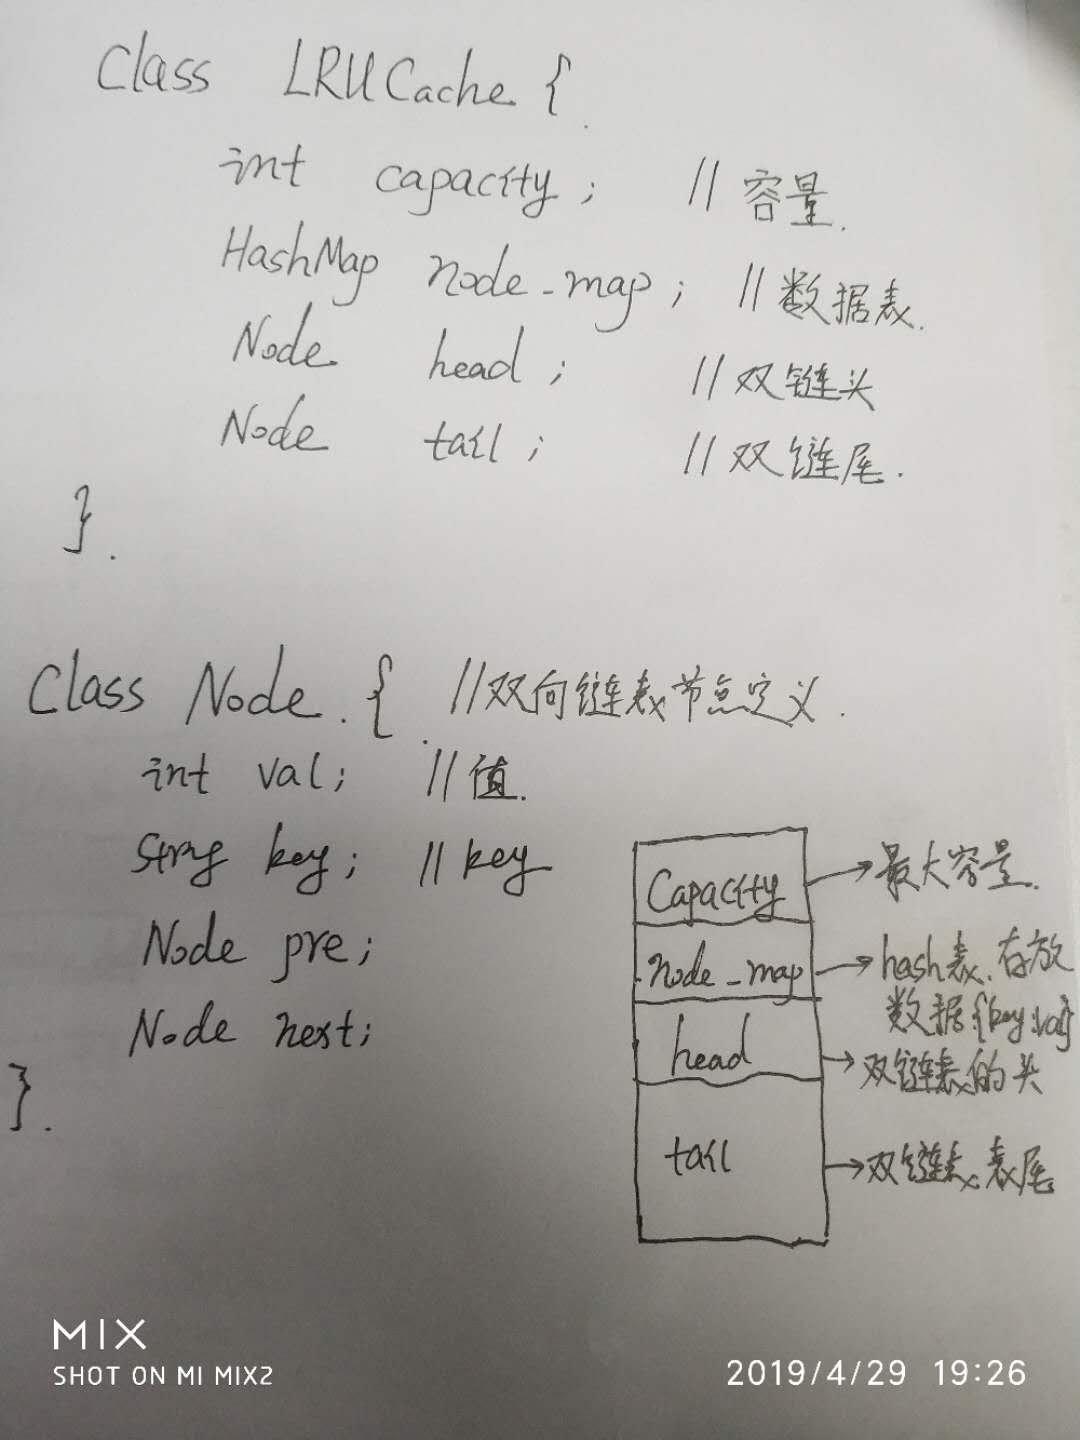 Class LRUCache {
int capacity; // 容量.
HashMap node_map; // 数据表.
Node head; // 双链头
Node tail; // 双链尾.
}.
Class Node. { // 双向链表节点定义.
int val; // 值.
String key; // key
Node pre;
Node next;
}.
Capacity → 最大容量.
node_map → hash表.存放
数据{key:val}
head → 双链表的头
tail → 双链表表尾
MIX
SHOT ON MI MIX2
2019/4/29 19:26